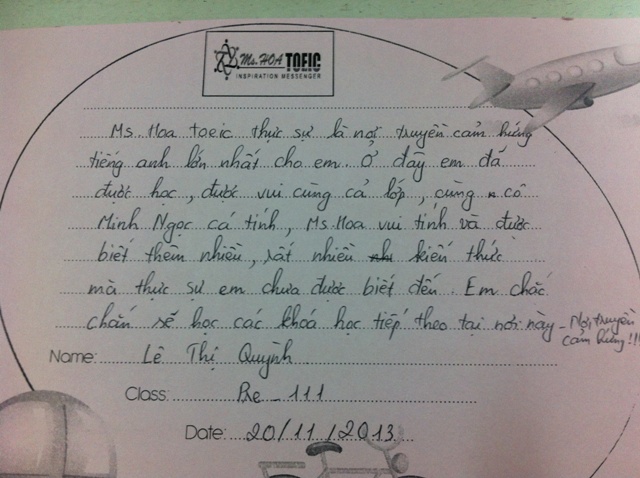 Ms. HOA TOEIC
INSPIRATION MESSENGER
Ms. Hoa toeic thực sự là nơi truyền cảm hứng
tiếng anh lớn nhất cho em. Ở đây em đã
được học, được vui cùng cả lớp, cùng cô
Minh Ngọc cá tính, Ms. Hoa vui tính và được
biết thêm nhiều, rất nhiều kiến thức
mà thực sự em chưa được biết đến. Em chắc
chắn sẽ học các khoá học tiếp theo tại nơi này - Nơi truyền
cảm hứng!!!
Name: Lê Thị Quỳnh
Class: Pre - 111
Date: 20/11/2013